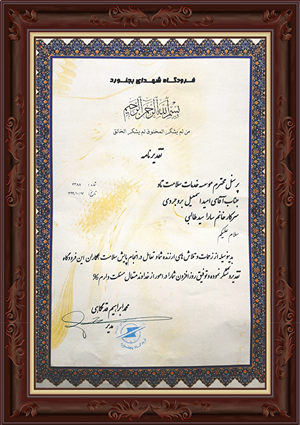 فرودگاه شهدای بجنورد
بسم الله الرحمن الرحیم
من لم یشکر المخلوق لم یشکر الخالق
تقدیرنامه
پرسنل محترم موسسه خدمات سلامت تاد
جناب آقای امیدا اسمعیل بروجردی
سرکار خانم سارا سید طالبی
سلام علیکم
بدینوسیله از زحمات و تلاش های ارزنده شما در انجام پایش سلامت همکاران این فرودگاه
تقدیر و تشکر نموده و توفیق روزافزون شما را در امور از خداوند متعال مسئلت دارم
محمد ابراهیم
مدیر